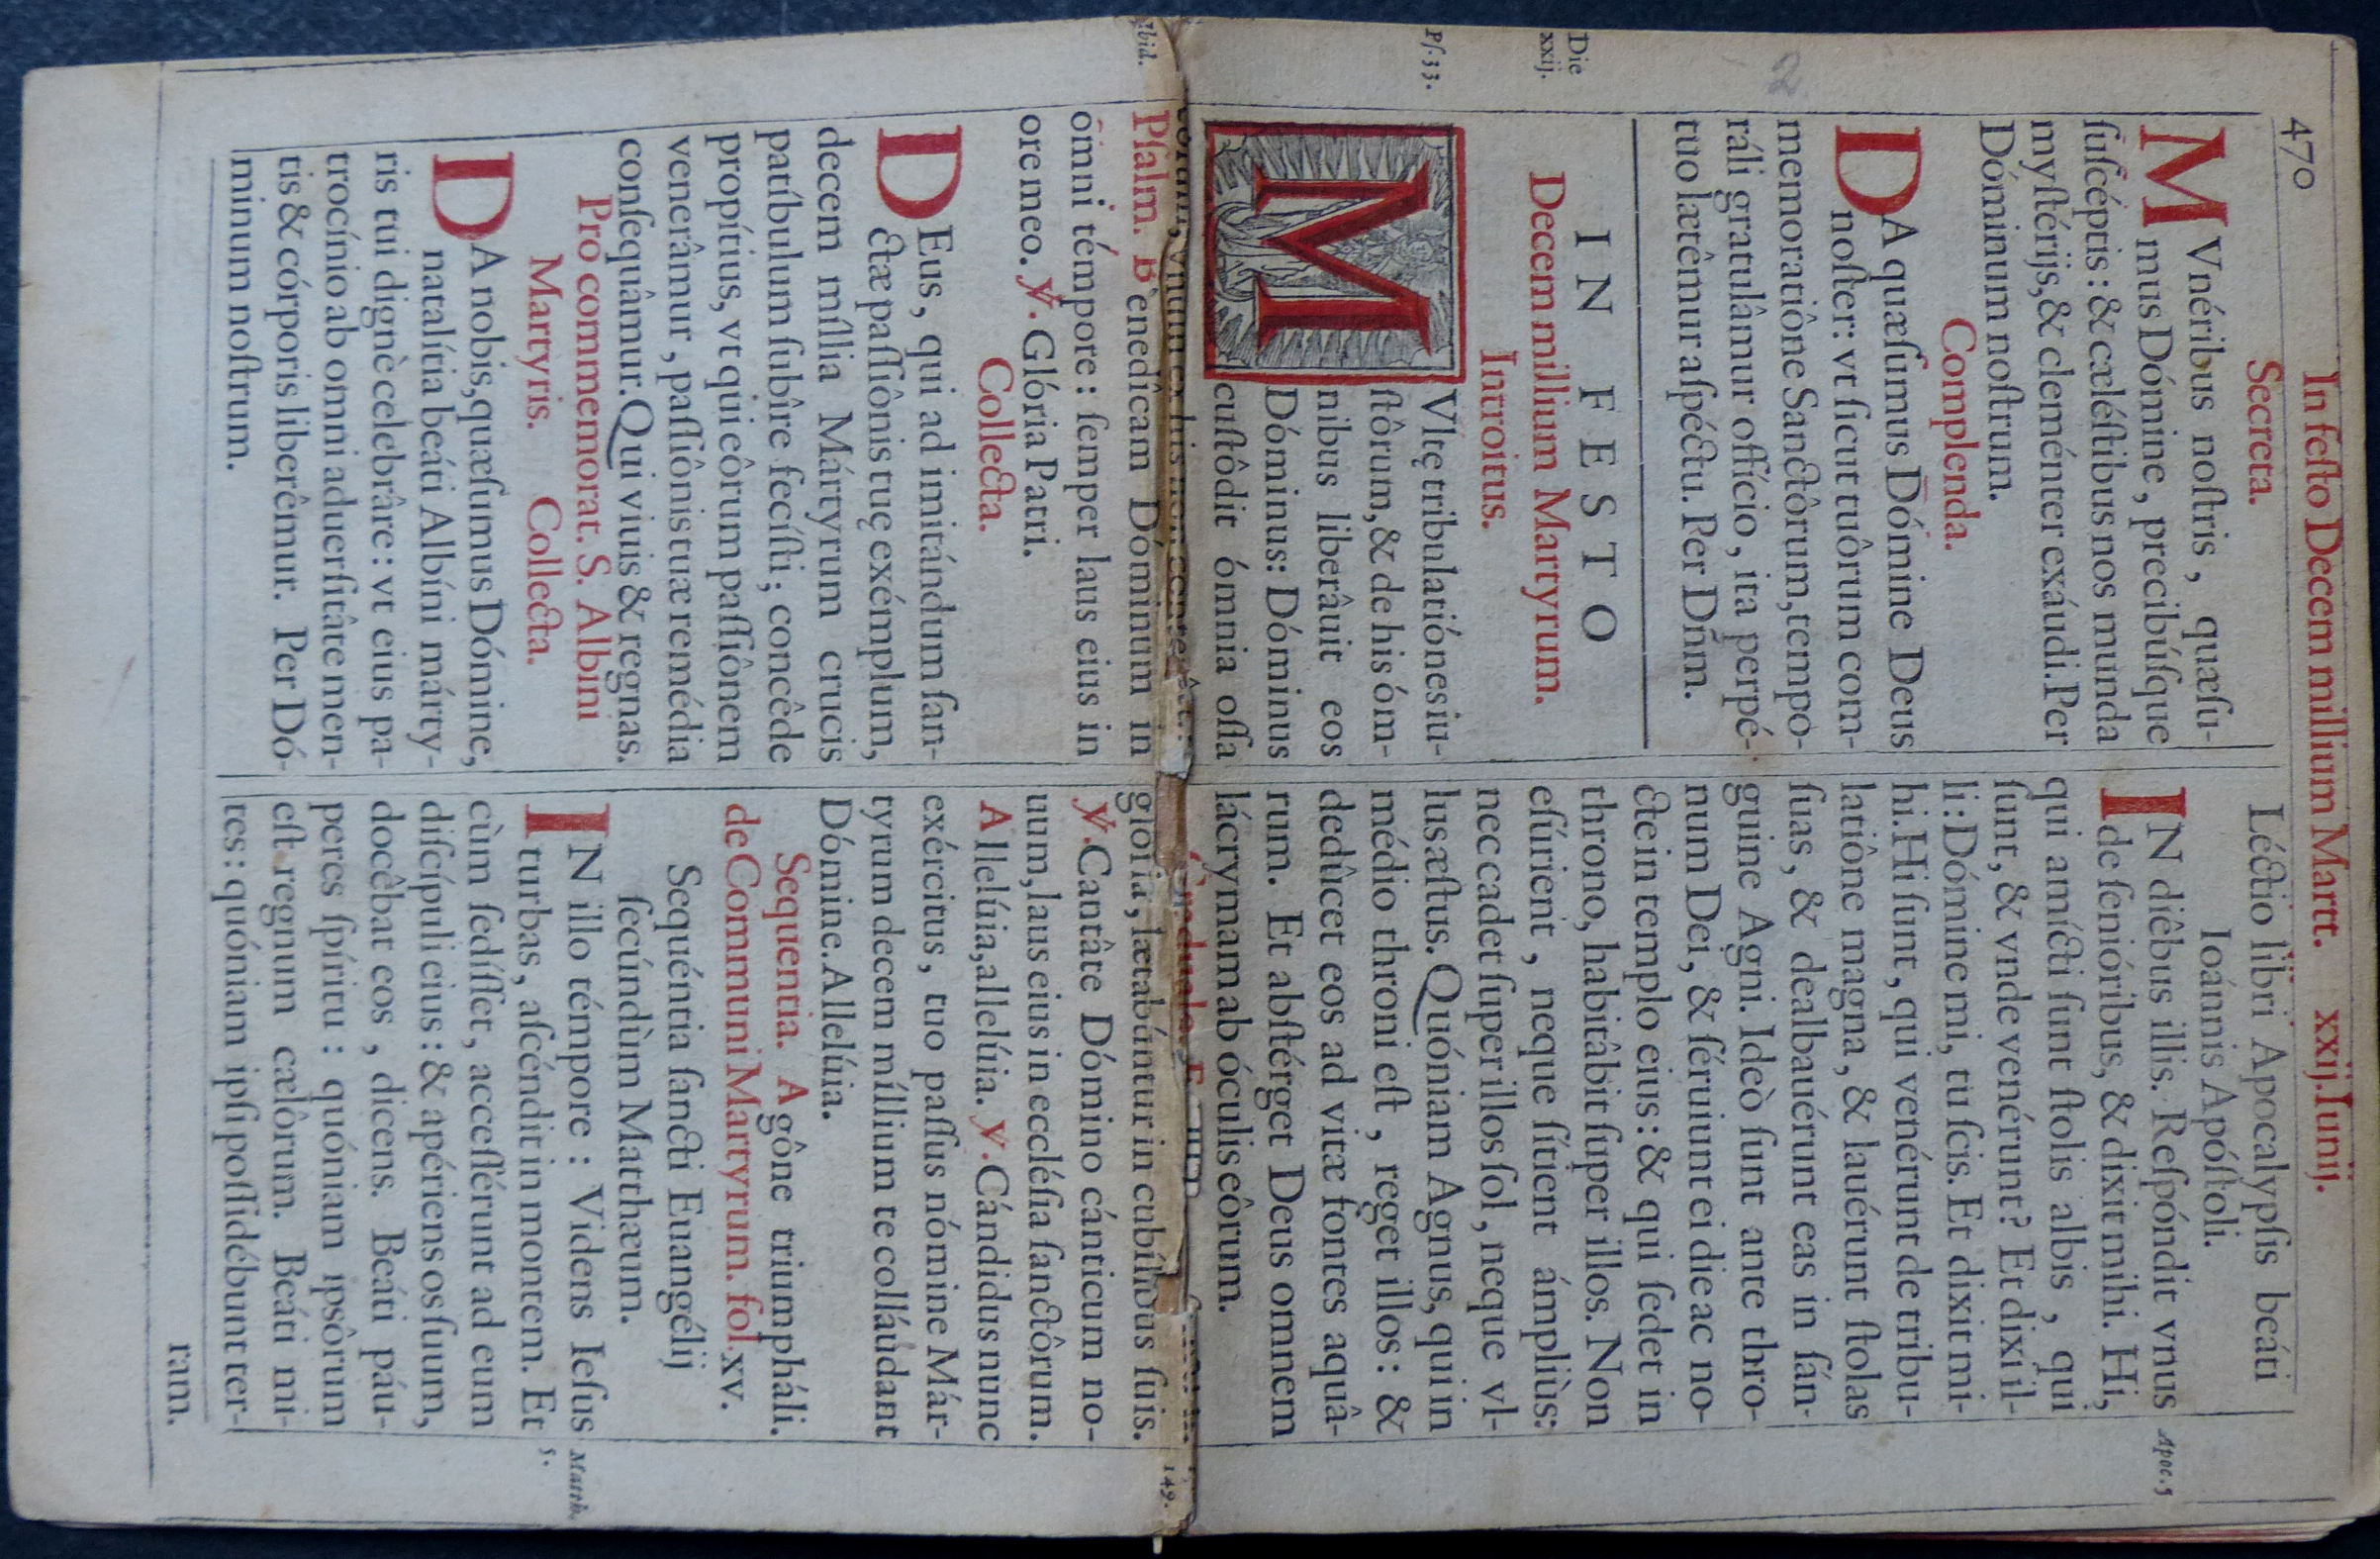 470 In feſto Decem millium Martt. xxij. Iunij.
Secreta.
MVnéribus noſtris, quæſu-
mus Dómine, precibúſque
ſuſcéptis: & cæléſtibus nos munda
myſtérijs, & cleménter exáudi. Per
Dóminum noſtrum.
Complenda.
DA quæſumus Dómine Deus
noſter: vt ſicut tuôrum com-
memoratiône Sanctôrum, tempo-
ráli gratulâmur offício, ita perpé-
tuo lætêmur aſpéctu. Per Dñm.
Die
xxij.
IN FESTO
Decem millium Martyrum.
Introitus.
Pſ. 33.
MVltę tribulatiónes iu-
ſtôrum, & de his óm-
nibus liberâuit eos
Dóminus: Dóminus
cuſtôdit ómnia oſſa
Ibid.
Pſalm. Benedîcam Dóminum in
omni témpore: ſemper laus eius in
ore meo. ℣. Glória Patri.
Collecta.
DEus, qui ad imitándum ſan-
ctæ paſſiônis tuę exémplum,
decem míllia Mártyrum crucis
patíbulum ſubîre fecíſti; concêde
propítius, vt qui eôrum paſſiônem
venerâmur, paſſiônis tuæ remédia
conſequâmur. Qui viuis & regnas.
Pro commemorat. S. Albini
Martyris. Collecta.
DA nobis, quæſumus Dómine,
natalítia beáti Albíni márty-
ris tui dignè celebrâre: vt eius pa-
trocínio ab omni aduerſitâte men-
tis & córporis liberêmur. Per Dó-
minum noſtrum.
Léctio libri Apocalypſis beáti
Ioánnis Apóſtoli.
IN diêbus illis. Reſpóndit vnus
de ſenióribus, & dixit mihi. Hi,
qui amícti ſunt ſtolis albis, qui
ſunt, & vnde venérunt? Et dixi il-
li: Dómine mi, tu ſcis. Et dixit mi-
hi. Hi ſunt, qui venérunt de tribu-
latiône magna, & lauérunt ſtolas
ſuas, & dealbauérunt eas in ſán-
guine Agni. Ideò ſunt ante thro-
num Dei, & ſéruiunt ei die ac no-
cte in templo eius: & qui ſedet in
throno, habitâbit ſuper illos. Non
eſúrient, neque ſítient ámpliùs:
nec cadet ſuper illos ſol, neque vl-
lus æſtus. Quóniam Agnus, qui in
médio throni eſt, reget illos: &
dedûcet eos ad vitæ fontes aquâ-
rum. Et abſtérget Deus omnem
lácrymam ab óculis eôrum.
Apoc. 5
Graduale.
149.
glória, lætabúntur in cubílibus ſuis.
℣. Cantâte Dómino cánticum no-
uum, laus eius in eccléſia ſanctôrum.
Allelúia, allelúia. ℣. Cándidus nunc
exércitus, tuo paſſus nómine Már-
tyrum decem míllium te colláudant
Dómine. Allelúia.
Sequentia. Agône triumpháli.
de Communi Martyrum. fol. xv.
Sequéntia ſancti Euangélij
ſecúndùm Matthæum.
IN illo témpore: Videns Ieſus
turbas, aſcéndit in montem. Et
cùm ſedíſſet, acceſſérunt ad eum
diſcípuli eius: & apériens os ſuum,
docêbat eos, dicens. Beáti páu-
peres ſpíritu: quóniam ipsôrum
eſt regnum cælôrum. Beáti mi-
tes: quóniam ipſi poſſidébunt ter-
ram.
Matth.
5.